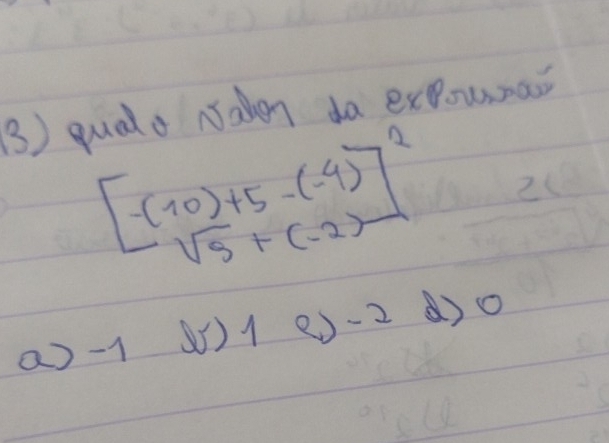 13) qual o valor da expressão
[-(10)+5-(-4)]²
√9+(-2)
a) -1 b) 1 c) -2 d) 0